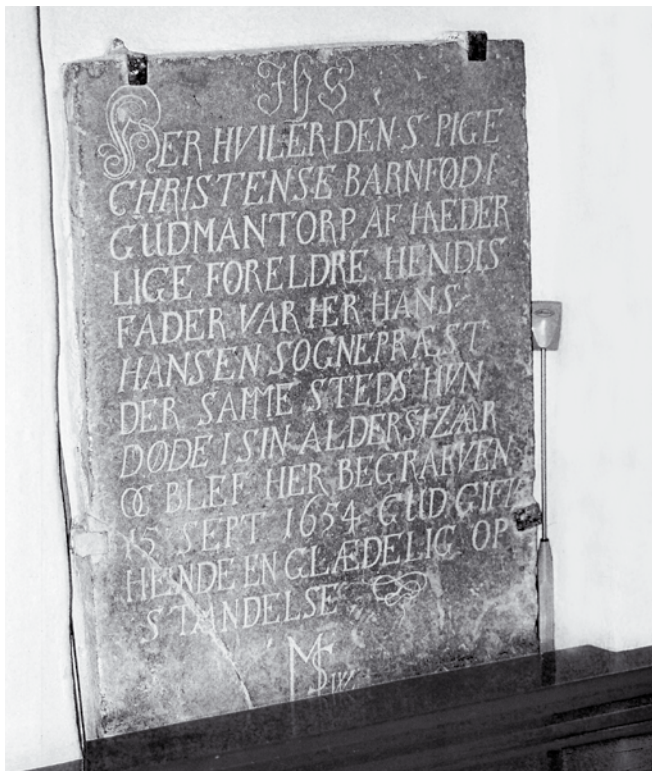 JhS
HER HVILER DEN S. PIGE
CHRISTENSE BARNFØD I
GUDMANTORP AF HÆDER
LIGE FORELDRE HENDIS
FADER VAR HER HANS
HANSEN SOGNEPRÆST
DER SAMME STEDS HVN
DØDE I SIN ALDERS 12 AAR
OG BLEF HER BEGRARVEN
15 SEPT 1654 GUD GIFVE
HENDE EN GLÆDELIG OP
STANDELSE